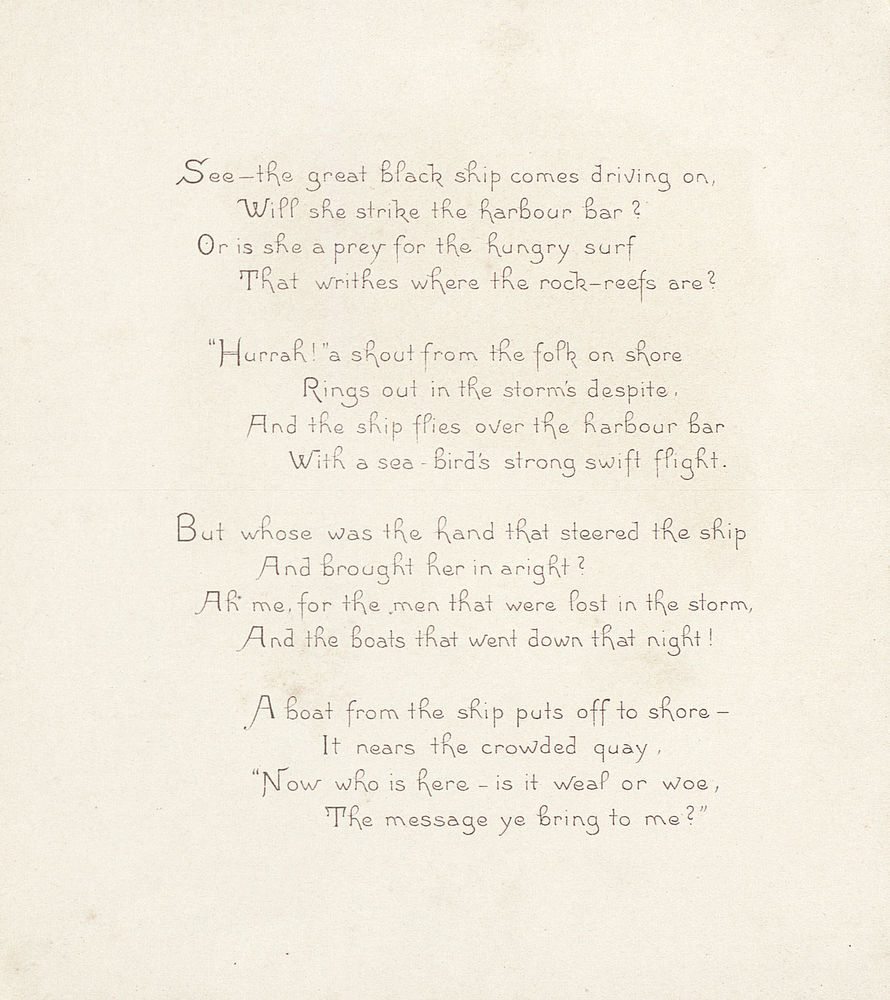 See—the great black ship comes driving on,
Will she strike the harbour bar?
Or is she a prey for the hungry surf
That writhes where the rock-reefs are?
"Hurrah!" a shout from the folk on shore
Rings out in the storm's despite,
And the ship flies over the harbour bar
With a sea-bird's strong swift flight.
But whose was the hand that steered the ship
And brought her in aright?
Ah me, for the men that were lost in the storm,
And the boats that went down that night!
A boat from the ship puts off to shore—
It nears the crowded quay,
"Now who is here – is it weal or woe,
The message ye bring to me?"